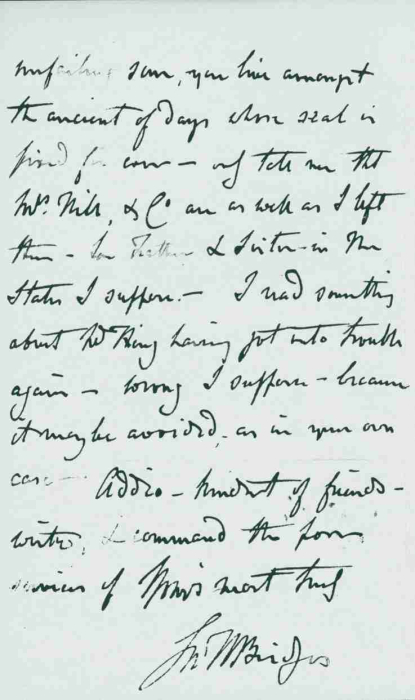 sun, you live amongst
the ancient of days whose seat is
fixed for ever — only tell me that
Mrs. Hill, & Co are as well as I left
them — her Father & Sister in the
States I suppose. — I read something
about Mr King having got into trouble
again — wrong I suppose — because
it may be avoided, as in your own
case — Addio — kindest of friends —
write, & command the poor
services of Yours most truly